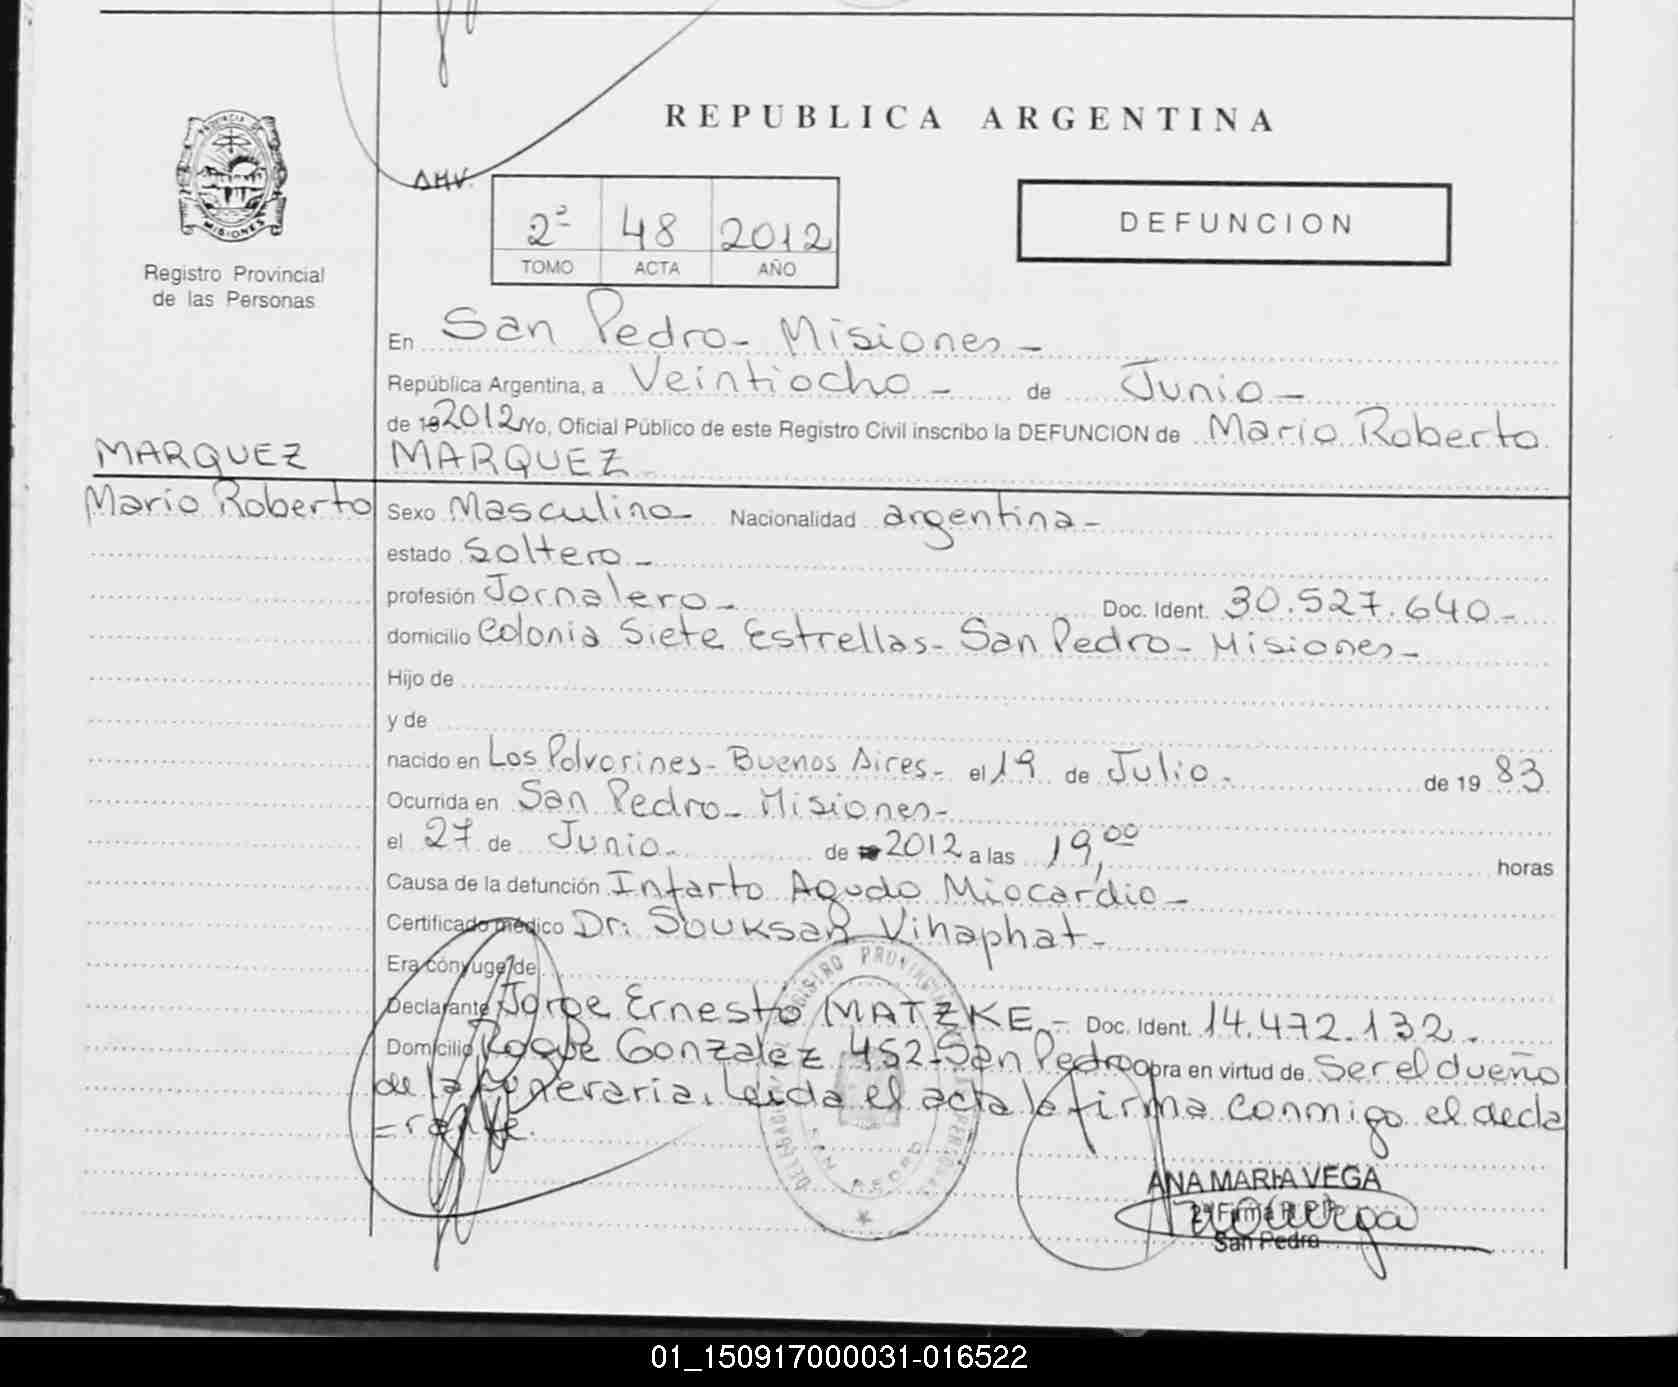 REPUBLICA ARGENTINA
PROVINCIA DE
MISIONES
Registro Provincial
de las Personas
AMV.
2º 48 2012
TOMO ACTA AÑO
DEFUNCION
En San Pedro - Misiones -
República Argentina, a Veintiocho - de Junio -
de 19 2012 Yo, Oficial Público de este Registro Civil inscribo la DEFUNCION de Mario Roberto
MARQUEZ
MARQUEZ
Mario Roberto
Sexo Masculino - Nacionalidad argentina -
estado Soltero -
profesión Jornalero - Doc. Ident. 30.527.640 -
domicilio Colonia Siete Estrellas - San Pedro - Misiones -
Hijo de
y de
nacido en Los Polvorines - Buenos Aires - el 19 de Julio - de 19 83
Ocurrida en San Pedro - Misiones -
el 27 de Junio - de 2012 a las 19,00 horas
Causa de la defunción Infarto Agudo Miocardio -
Certificado médico Dr. Souksan Vihaphat -
Era cónyuge de
Declarante Jorge Ernesto MATZKE - Doc. Ident. 14.472.132 .
Domicilio Roque Gonzalez 452 - San Pedro obra en virtud de Ser el dueño
de la funeraria. Leida el acta la firma conmigo el decla
= rante.
REGISTRO PROVINCIAL
SAN PEDRO
ANA MARIA VEGA
2ª Firma R.P.P.
San Pedro
01_150917000031-016522